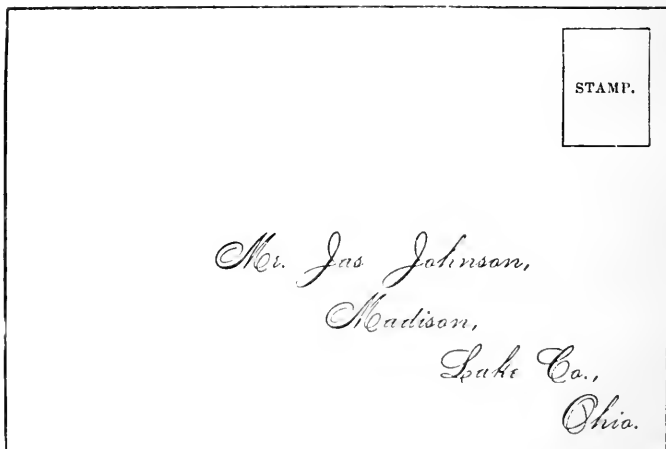 STAMP.
Mr. Jas Johnson,
Madison,
Lake Co.,
Ohio.